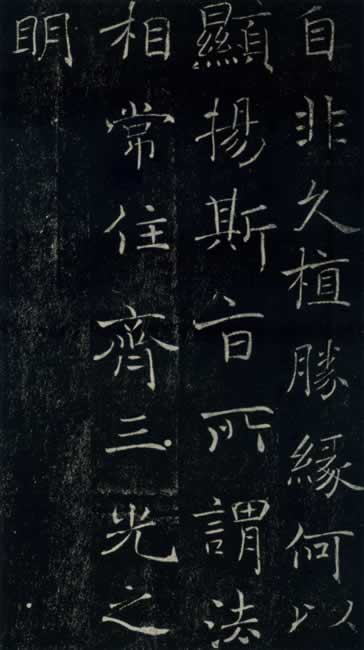 自非久植勝縁何以
顯揚斯旨所謂法
相常住齊三光之
明